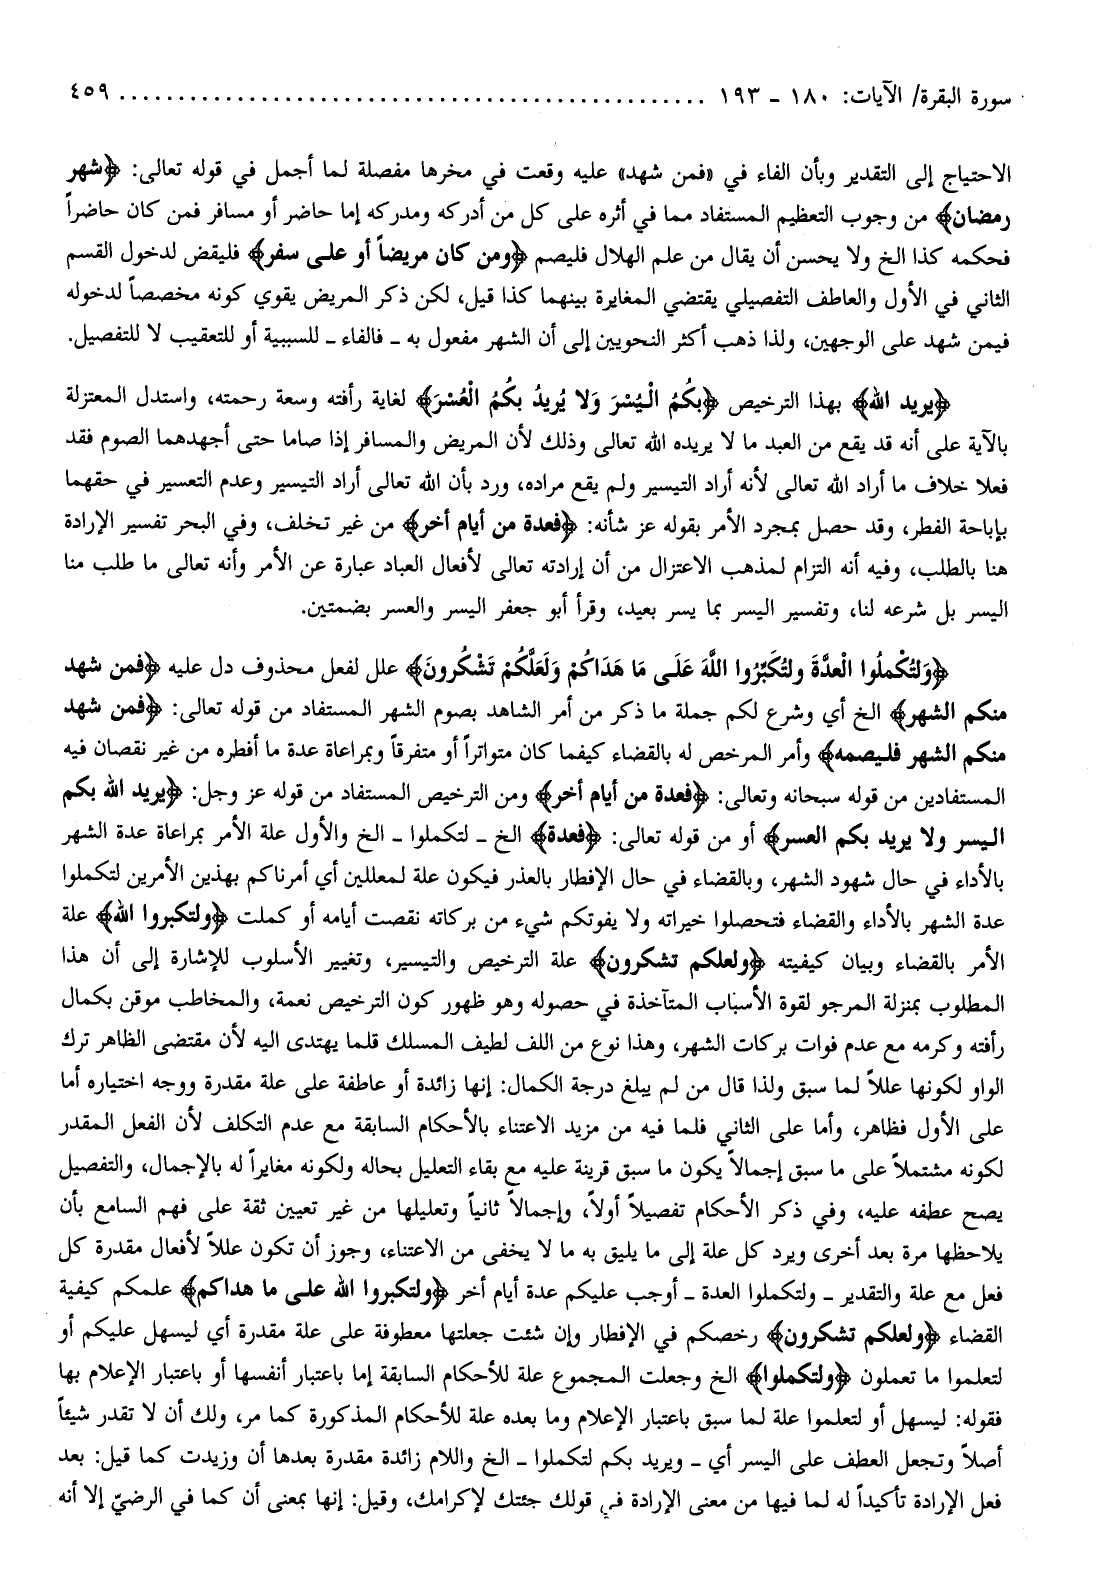 سورة البقرة/ الآيات: ١٨٠ - ١٩٣ .................................................. ٤٥٩
الاحتياج إلى التقدير وبأن الفاء في «فمن شهد» عليه وقعت في مخرها مفصلة لما أجمل في قوله تعالى: ﴿شهر
رمضان﴾ من وجوب التعظيم المستفاد مما في أثره على كل من أدركه ومدركه إما حاضر أو مسافر فمن كان حاضراً
فحكمه كذا الخ ولا يحسن أن يقال من علم الهلال فليصم ﴿ومن كان مريضاً أو على سفر﴾ فليقض لدخول القسم
الثاني في الأول والعاطف التفصيلي يقتضي المغايرة بينهما كذا قيل، لكن ذكر المريض يقوي كونه مخصصاً لدخوله
فيمن شهد على الوجهين، ولذا ذهب أكثر النحويين إلى أن الشهر مفعول به ـ فالفاء ـ للسببية أو للتعقيب لا للتفصيل.
﴿يريد الله﴾ بهذا الترخيص ﴿بكُمُ الْيُسْرَ وَلا يُرِيدُ بكُمُ الْعُسْرَ﴾ لغاية رأفته وسعة رحمته، واستدل المعتزلة
بالآية على أنه قد يقع من العبد ما لا يريده الله تعالى وذلك لأن المريض والمسافر إذا صاما حتى أجهدهما الصوم فقد
فعلا خلاف ما أراد الله تعالى لأنه أراد التيسير ولم يقع مراده، ورد بأن الله تعالى أراد التيسير وعدم التعسير في حقهما
بإباحة الفطر، وقد حصل بمجرد الأمر بقوله عز شأنه: ﴿فعدة من أيام أخر﴾ من غير تخلف، وفي البحر تفسير الإرادة
هنا بالطلب، وفيه أنه التزام لمذهب الاعتزال من أن إرادته تعالى لأفعال العباد عبارة عن الأمر وأنه تعالى ما طلب منا
اليسر بل شرعه لنا، وتفسير اليسر بما يسر بعيد، وقرأ أبو جعفر اليسر والعسر بضمتين.
﴿وَلتُكْملُوا الْعدَّةَ ولتُكَبِّرُوا اللَّهَ عَلَى مَا هَدَاكُمْ وَلَعَلَّكُمْ تَشْكُرونَ﴾ علل لفعل محذوف دل عليه ﴿فمن شهد
منكم الشهر﴾ الخ أي وشرع لكم جملة ما ذكر من أمر الشاهد بصوم الشهر المستفاد من قوله تعالى: ﴿فمن شهد
منكم الشهر فليصمه﴾ وأمر المرخص له بالقضاء كيفما كان متواتراً أو متفرقاً وبمراعاة عدة ما أفطره من غير نقصان فيه
المستفادين من قوله سبحانه وتعالى: ﴿فعدة من أيام أخر﴾ ومن الترخيص المستفاد من قوله عز وجل: ﴿يريد الله بكم
اليسر ولا يريد بكم العسر﴾ أو من قوله تعالى: ﴿فعدة﴾ الخ ـ لتكملوا ـ الخ والأول علة الأمر بمراعاة عدة الشهر
بالأداء في حال شهود الشهر، وبالقضاء في حال الإفطار بالعذر فيكون علة لمعللين أي أمرناكم بهذين الأمرين لتكملوا
عدة الشهر بالأداء والقضاء فتحصلوا خيراته ولا يفوتكم شيء من بركاته نقصت أيامه أو كملت ﴿ولتكبروا الله﴾ علة
الأمر بالقضاء وبيان كيفيته ﴿ولعلكم تشكرون﴾ علة الترخيص والتيسير، وتغيير الأسلوب للإشارة إلى أن هذا
المطلوب بمنزلة المرجو لقوة الأسباب المتآخذة في حصوله وهو ظهور كون الترخيص نعمة، والمخاطب موقن بكمال
رأفته وكرمه مع عدم فوات بركات الشهر، وهذا نوع من اللف لطيف المسلك قلما يهتدى اليه لأن مقتضى الظاهر ترك
الواو لكونها عللاً لما سبق ولذا قال من لم يبلغ درجة الكمال: إنها زائدة أو عاطفة على علة مقدرة ووجه اختياره أما
على الأول فظاهر، وأما على الثاني فلما فيه من مزيد الاعتناء بالأحكام السابقة مع عدم التكلف لأن الفعل المقدر
لكونه مشتملاً على ما سبق إجمالاً يكون ما سبق قرينة عليه مع بقاء التعليل بحاله ولكونه مغايراً له بالإجمال، والتفصيل
يصح عطفه عليه، وفي ذكر الأحكام تفصيلاً أولاً، وإجمالاً ثانياً وتعليلها من غير تعيين ثقة على فهم السامع بأن
يلاحظها مرة بعد أخرى ويرد كل علة إلى ما يليق به ما لا يخفى من الاعتناء، وجوز أن تكون عللاً لأفعال مقدرة كل
فعل مع علة والتقدير ـ ولتكملوا العدة ـ أوجب عليكم عدة أيام أخر ﴿ولتكبروا الله على ما هداكم﴾ علمكم كيفية
القضاء ﴿ولعلكم تشكرون﴾ رخصكم في الإفطار وإن شئت جعلتها معطوفة على علة مقدرة أي ليسهل عليكم أو
لتعلموا ما تعملون ﴿ولتكملوا﴾ الخ وجعلت المجموع علة للأحكام السابقة إما باعتبار أنفسها أو باعتبار الإعلام بها
فقوله: ليسهل أو لتعلموا علة لما سبق باعتبار الإعلام وما بعده علة للأحكام المذكورة كما مر، ولك أن لا تقدر شيئاً
أصلاً وتجعل العطف على اليسر أي ـ ويريد بكم لتكملوا ـ الخ واللام زائدة مقدرة بعدها أن وزيدت كما قيل: بعد
فعل الإرادة تأكيداً له لما فيها من معنى الإرادة في قولك جئتك لإكرامك، وقيل: إنها بمعنى أن كما في الرضيّ إلا أنه